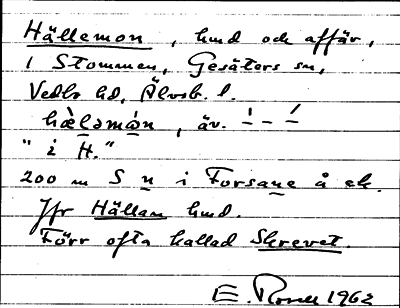 Hällemon, hmd och affär,
i Stommen, Gesäters sn,
Vedbo hd, Älvsb. l.
hæ̀ləmòn, äv. – – –
" i H."
200 m S n i Forsane å ek.
Jfr Hällan hmd.
Förr ofta kallad Skrevet.
E. 1962